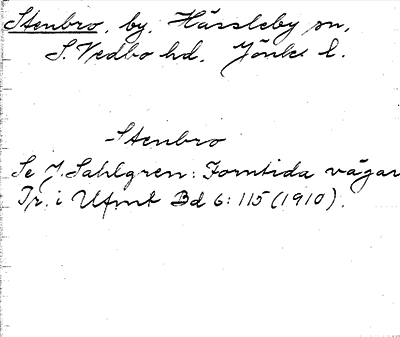 Stenbro, by, Hässleby sn,
S. Vedbo hd, Jönk. l.
Stenbro
Se J. Sahlgren: Forntida vägar
Tr. i Ufmt Bd 6: 115 (1910).